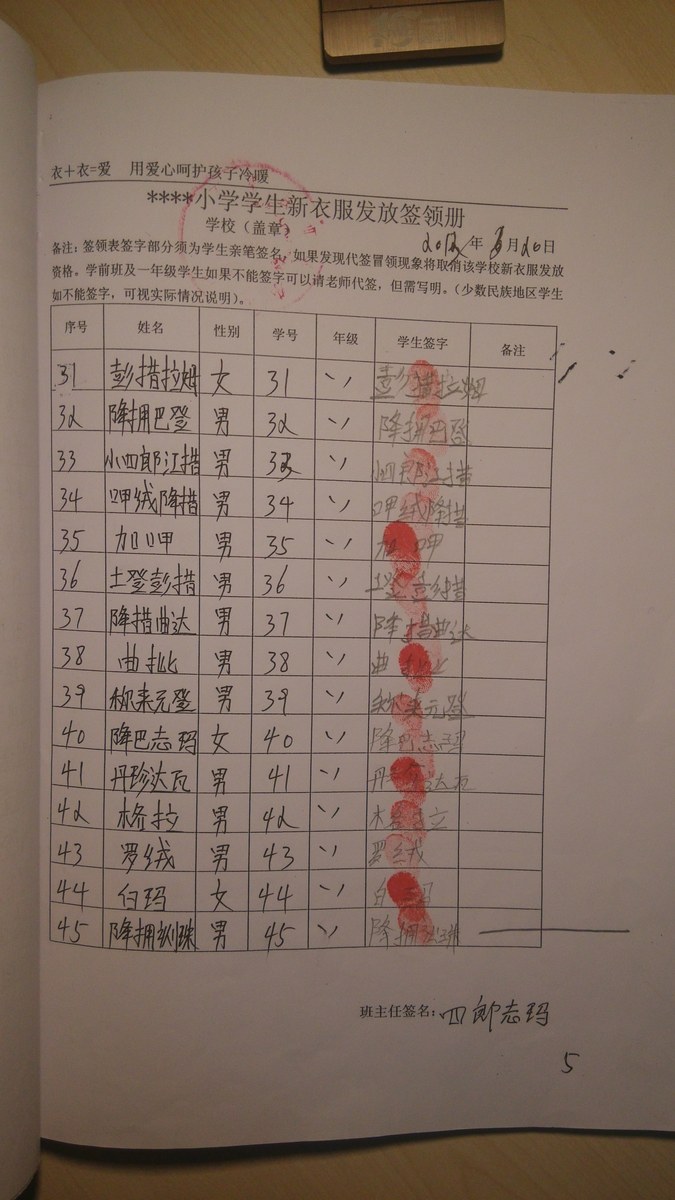 衣+衣=爱 用爱心呵护孩子冷暖
****小学学生新衣服发放签领册
学校(盖章) 年 月20日
备注:签领表签字部分须为学生亲笔签名,如果发现代签冒领现象将取消该学校新衣服发放
资格。学前班及一年级学生如果不能签字可以请老师代签,但需写明。(少数民族地区学生
如不能签字,可视实际情况说明)。
序号 姓名 性别 学号 年级 学生签字 备注
31 彭措拉姆 女 31 〃 彭措拉姆
32 降拥巴登 男 32 〃 降拥巴登
33 小四郎江措 男 33 〃 小四郎江措
34 呷绒降措 男 34 〃 呷绒降措
35 加呷 男 35 〃 加呷
36 土登彭措 男 36 〃 土登彭措
37 降措曲达 男 37 〃 降措曲达
38 曲批 男 38 〃 曲批
39 称来元登 男 39 〃 称来元登
40 降巴志玛 女 40 〃 降巴志玛
41 丹珍达瓦 男 41 〃 丹珍达瓦
42 格拉 男 42 〃
43 罗绒 男 43 〃 罗绒
44 白玛 女 44 〃 白玛
45 降拥 男 45 〃 降拥
班主任签名:四郎志玛
5